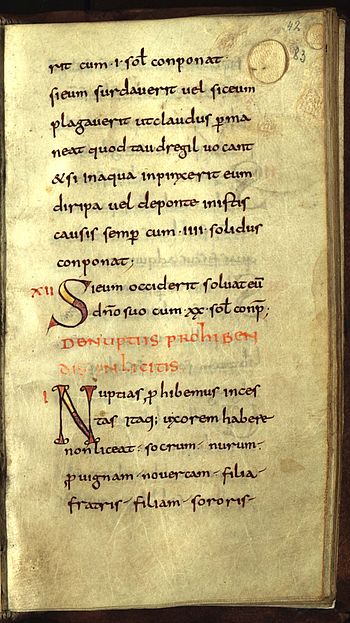 42
83
rit cum · I · sol conponat
sieum surdaverit vel siceum
plagaverit utclaudus pma
neat quod taudregil vocant
&si inaqua inpinxerit eum
deripa vel deponte inistis
causis semp cum · IIII · solidus
conponat;
XII Sieum occiderit solvateū
dño suo cum XX · sol conp;
DENUPTIIS PROHIBEN
DIS INLICITIS
I Nuptias, phibemus inces
tas itaq; uxorem habere
nonliceat · socrum · nurum ·
pvignam · novercam · filia
fratris · filiam · sororis ·